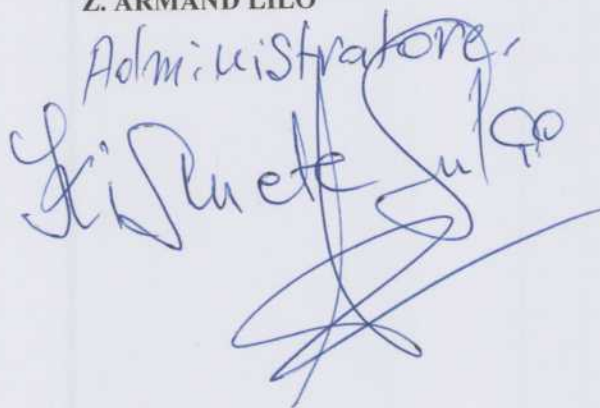 Z. ARMAND LILO
Administratore.
Sulço